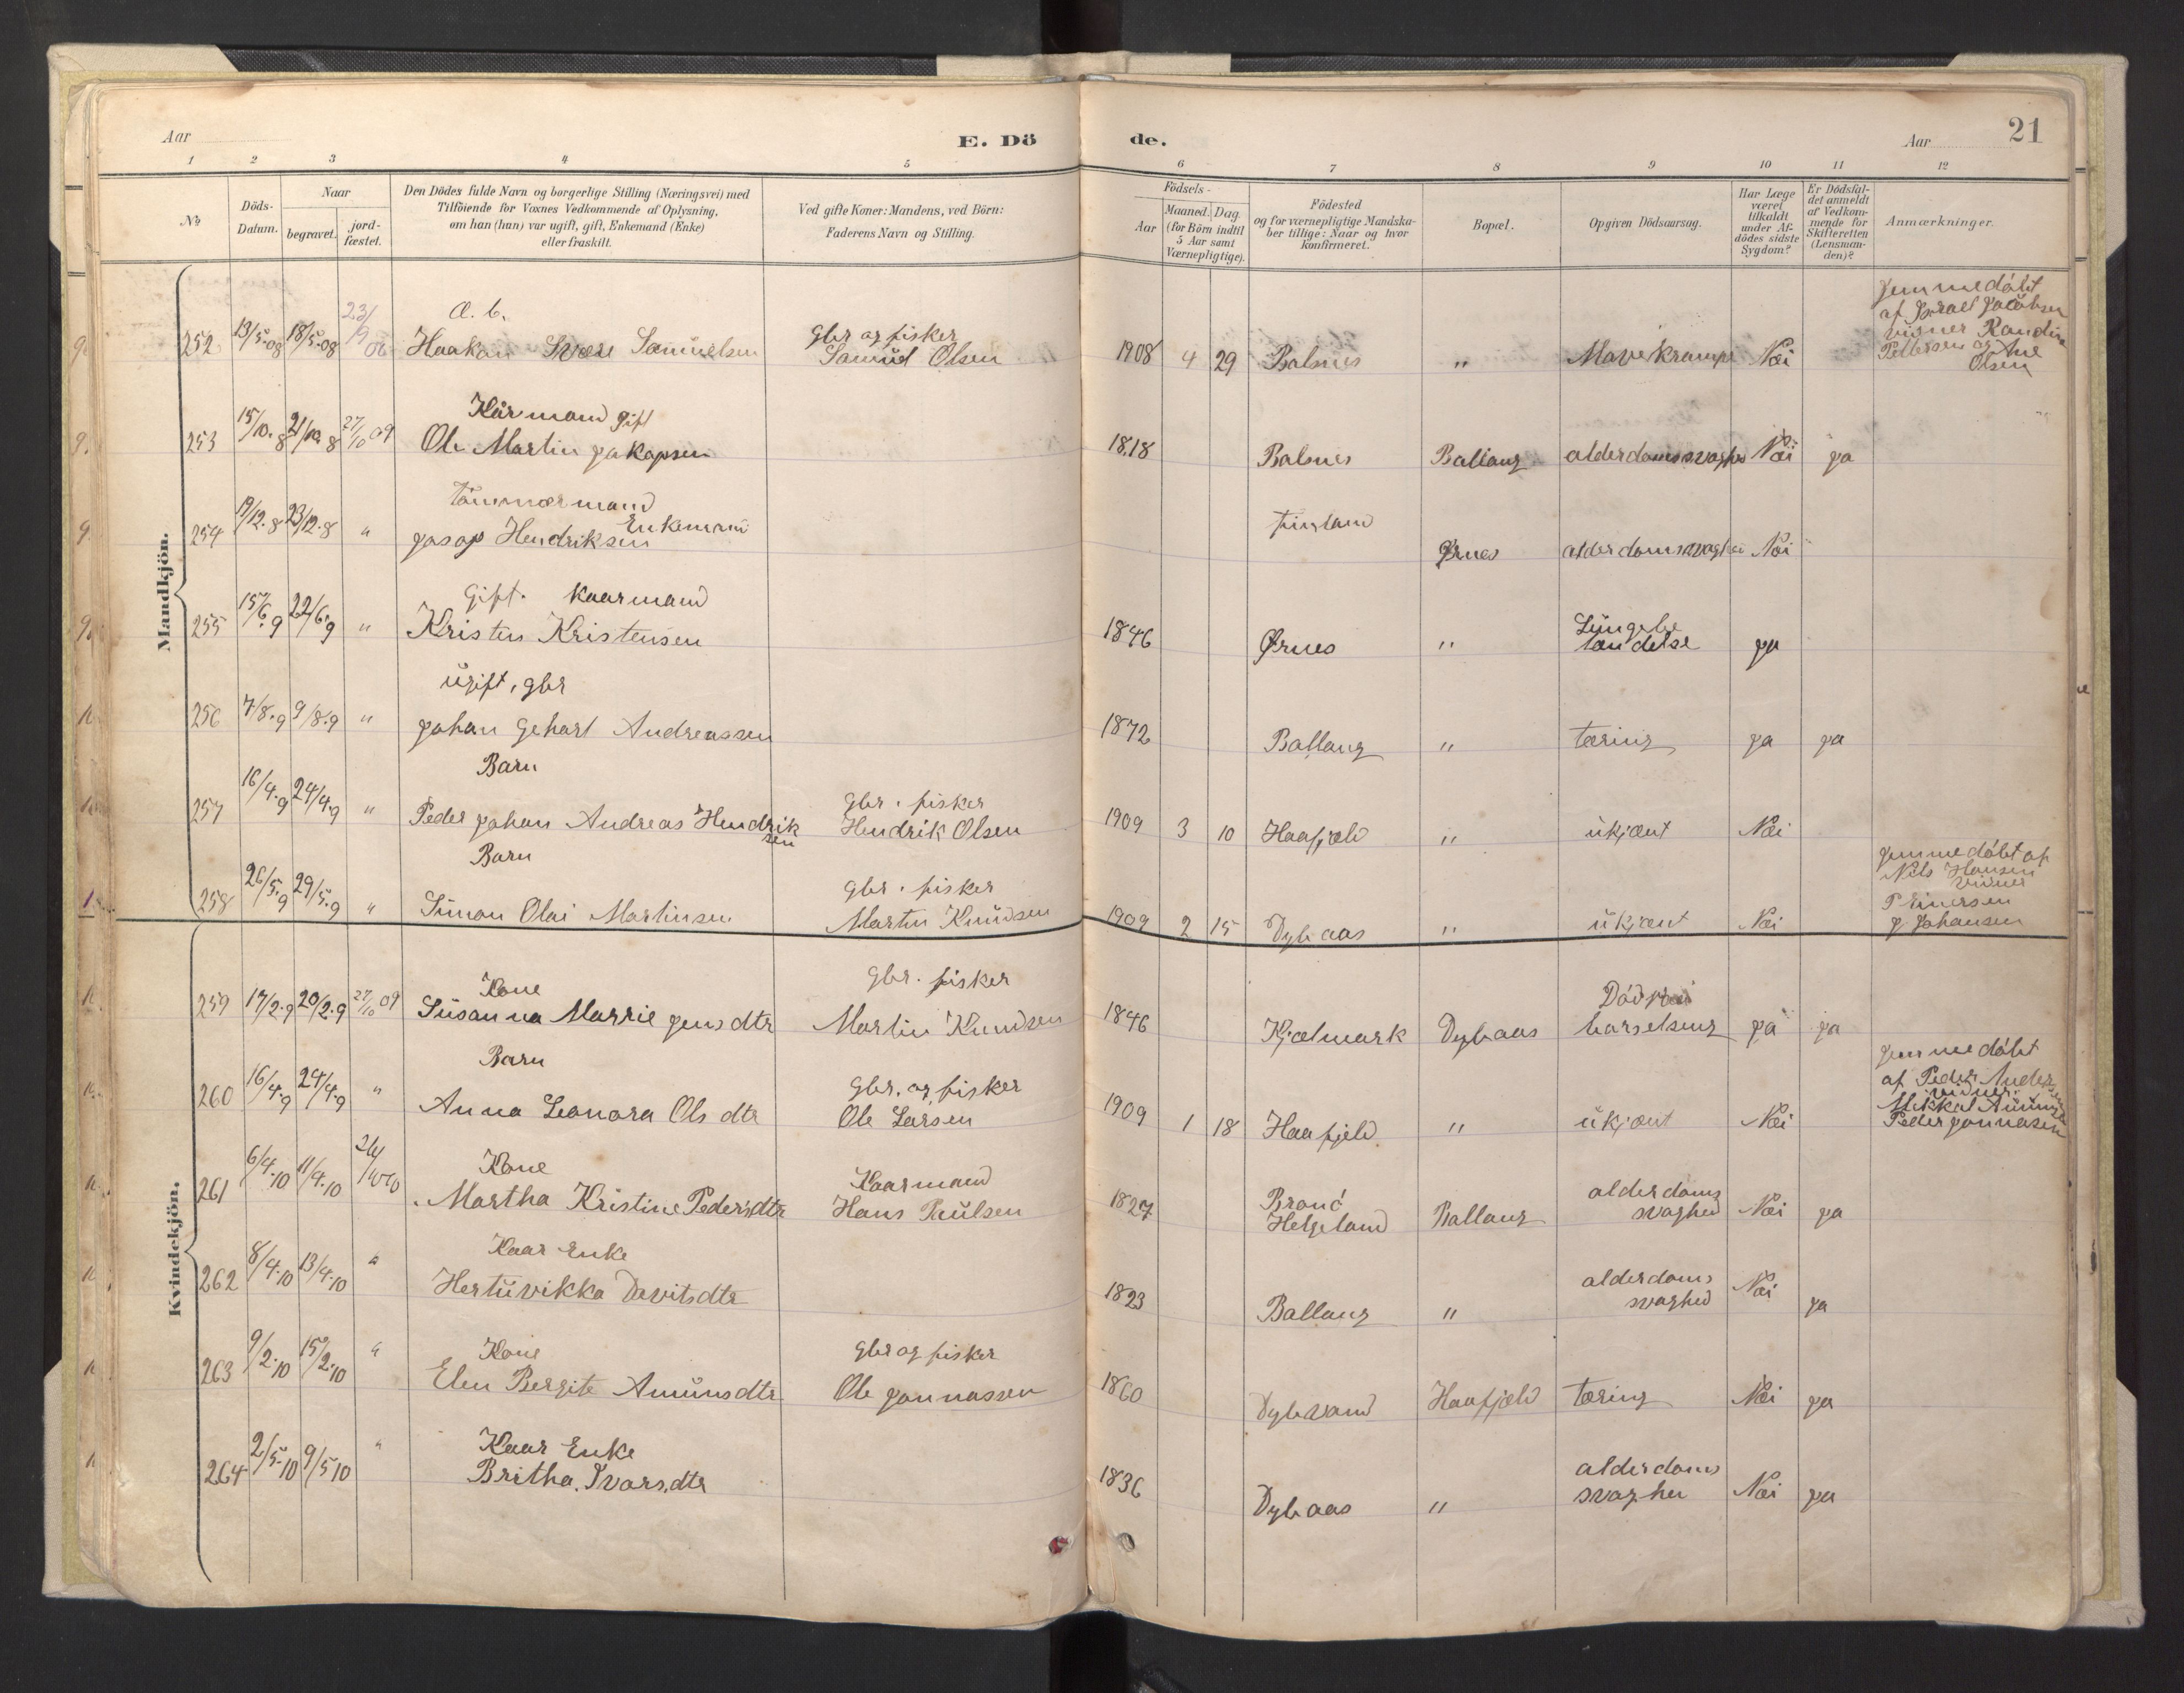 Aar
E. Dö
de.
Aar
21
1 2 3 4 5 6 7 8 9 10 11 12
No
Döds-Datum.
Naar
begravet.
jord-fæstet.
Den Dödes fulde Navn og borgerlige Stilling (Næringsvei) med
Tilföiende for Voxnes Vedkommende af Oplysning,
om han (hun) var ugift, gift, Enkemand (Enke)
eller fraskilt.
Ved gifte Koner: Mandens, ved Börn:
Faderens Navn og Stilling.
Födsels-
Aar
Maaned. Dag.
(for Börn indtil
5 Aar samt
Værnepligtige).
Födested
og for værnepligtige Mandska-
ber tillige: Naar og hvor
konfirmeret.
Bopæl.
Opgiven Dödsaarsag.
Har Læge
været
tilkaldt
under Af-
dödes sidste
Sygdom?
Er Dödsfal-
det anmeldt
af Vedkom-
mende for
Skifteretten
(Lensman-
den)?
Anmærkninger.
Mandkjön.
252 13/5-08 18/5-08 23/9 08
Haakon Sverre Samuelsen
Gbr og fisker
Samuel Olsen
1908 4 29 Balsnes " Mavekrampe Nei
jemmedöbt
af Israel Jacobsen
visner Randin
Pettersen og Ane
Olsen
253 15/10.8 21/10.8 27/10 09
Kårmand gift
Ole Martin jakopsen
1818 Balsnes Ballang alderdomssvaghe Nei ja
254 19/12.8 23/12.8 "
tömmermand
Enkemand
josop Hendriksen
finland
Ørnes alderdomssvaghe Nei
255 15/6.9 22/6.9 "
Gift. Kaarmand
Kristen Kristensen
1846 Ørnes " Lungebe
tændelse ja
256 7/8.9 9/8.9 "
ügift, gbr
johan Gehart Andreassen
1872 Ballang " tæring ja ja
257 16/4.9 24/4.9 "
Barn
Peder johan Andreas Hendrik
sen
Gbr. fisker
Hendrik Olsen
1909 3 10 Haafjeld " ükjent Nei
258 26/5.9 29/5.9 "
Barn
Simon Olai Martinsen
Gbr. fisker
Martin Knüdsen
1909 2 15 Dybaas " ükjent Nei
jemmedöbt af
Nils Hansen
vidner
P Einersen
J. Johansen
Kvindekjön.
259 17/2.9 20/2.9 27/10 09
Kone
Süsanna Marrie jens dtr
Gbr. fisker
Martin Knudsen
1846 Kjelmark Dybaas
barselseng ja ja
260 16/4.9 24/4.9 "
Barn
Anna Leonora Ols dtr
Gbr. og fisker
Ole Larsen
1909 1 18 Haafjeld " ükjent Nei
jemmedöbt
af Peder Anders
vidner
Mikkal
Peder jonnasen
261 6/4.10 11/4.10
Kone
Martha Kristine Peders dtr
Kaarmand
Hans Paülsen
1827 Bronö
Helgeland Ballang alderdoms
svaghed Nei ja
262 8/4.10 13/4.10 "
Kaar Enke
Hertüvikka Davitsdtr
1823 Ballang " alderdoms
svaghed Nei ja
263 9/2.10 15/2.10 "
Kone
Elen Bergite Amünsdtr
Gbr og fisker
Ole jonnassen
1860 Dybvand Haafjeld tæring Nei ja
264 2/5.10 9/5 10 "
Kaar Enke
Britha Ivars.dtr
1836 Dybaas " alderdoms
svaghe Nei ja